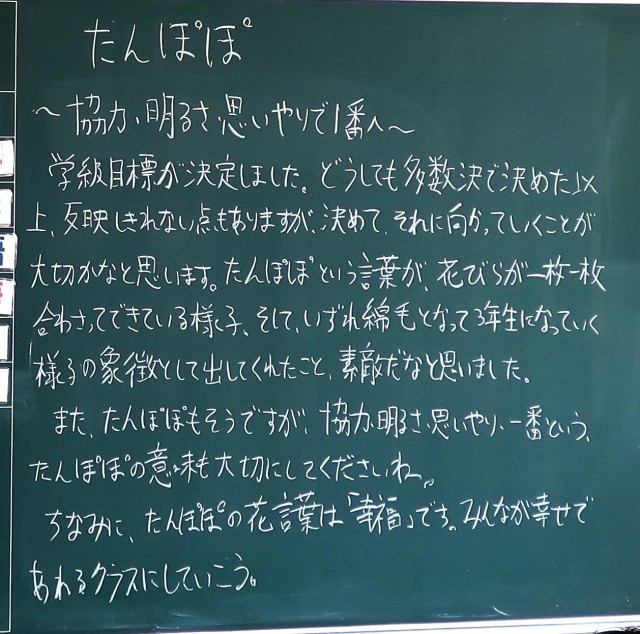 たんぽぽ
～協力、明るさ、思いやりで1番へ～
学級目標が決定しました。どうしても多数決で決めた以
上、反映しきれない点もありますが、決めて、それに向かっていくことが
大切かなと思います。たんぽぽという言葉が、花びらが一枚一枚
合わさってできている様子、そして、いずれ綿毛となって3年生になっていく
様子の象徴として出してくれたこと、素敵だなと思いました。
また、たんぽぽもそうですが、協力、明るさ、思いやり、一番という、
たんぽぽの意味も大切にしてくださいね。
ちなみに、たんぽぽの花言葉は「幸福」です。みんなが幸せで
あれるクラスにしていこう。